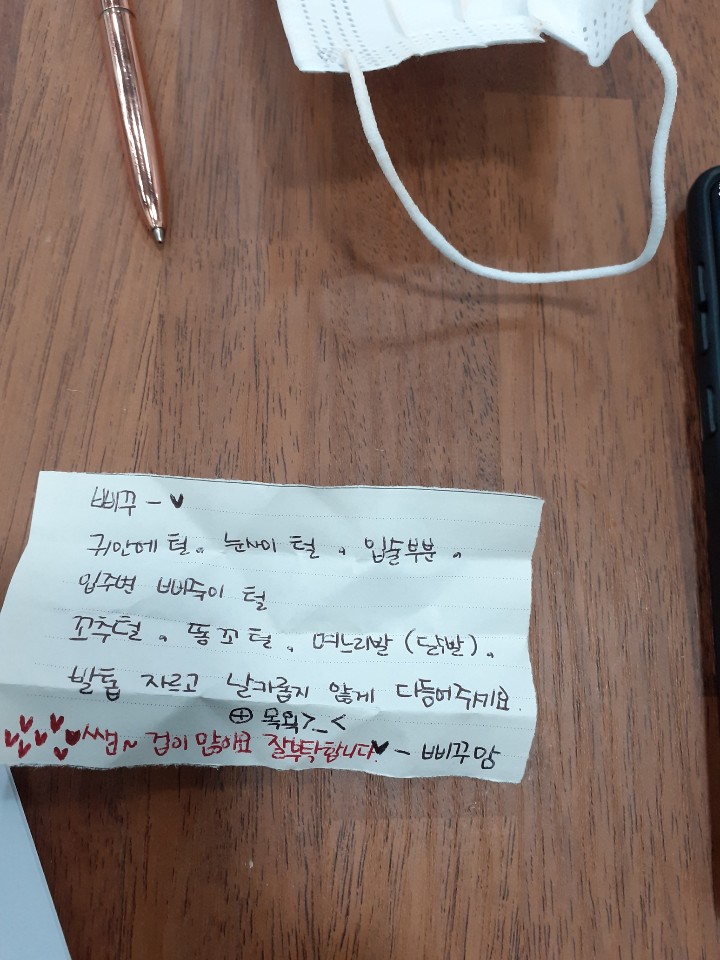 삐꾸 - ♥
귀안에 털. 눈사이 털. 입술부분.
입주변 삐쭉이 털
꼬추털. 똥꼬털. 며느리발 (닭발).
발톱 자르고 날카롭지 않게 다듬어주세요.
⊕ 목욕>_<
쌤~ 겁이 많아요 잘부탁합니다♥ - 삐꾸맘